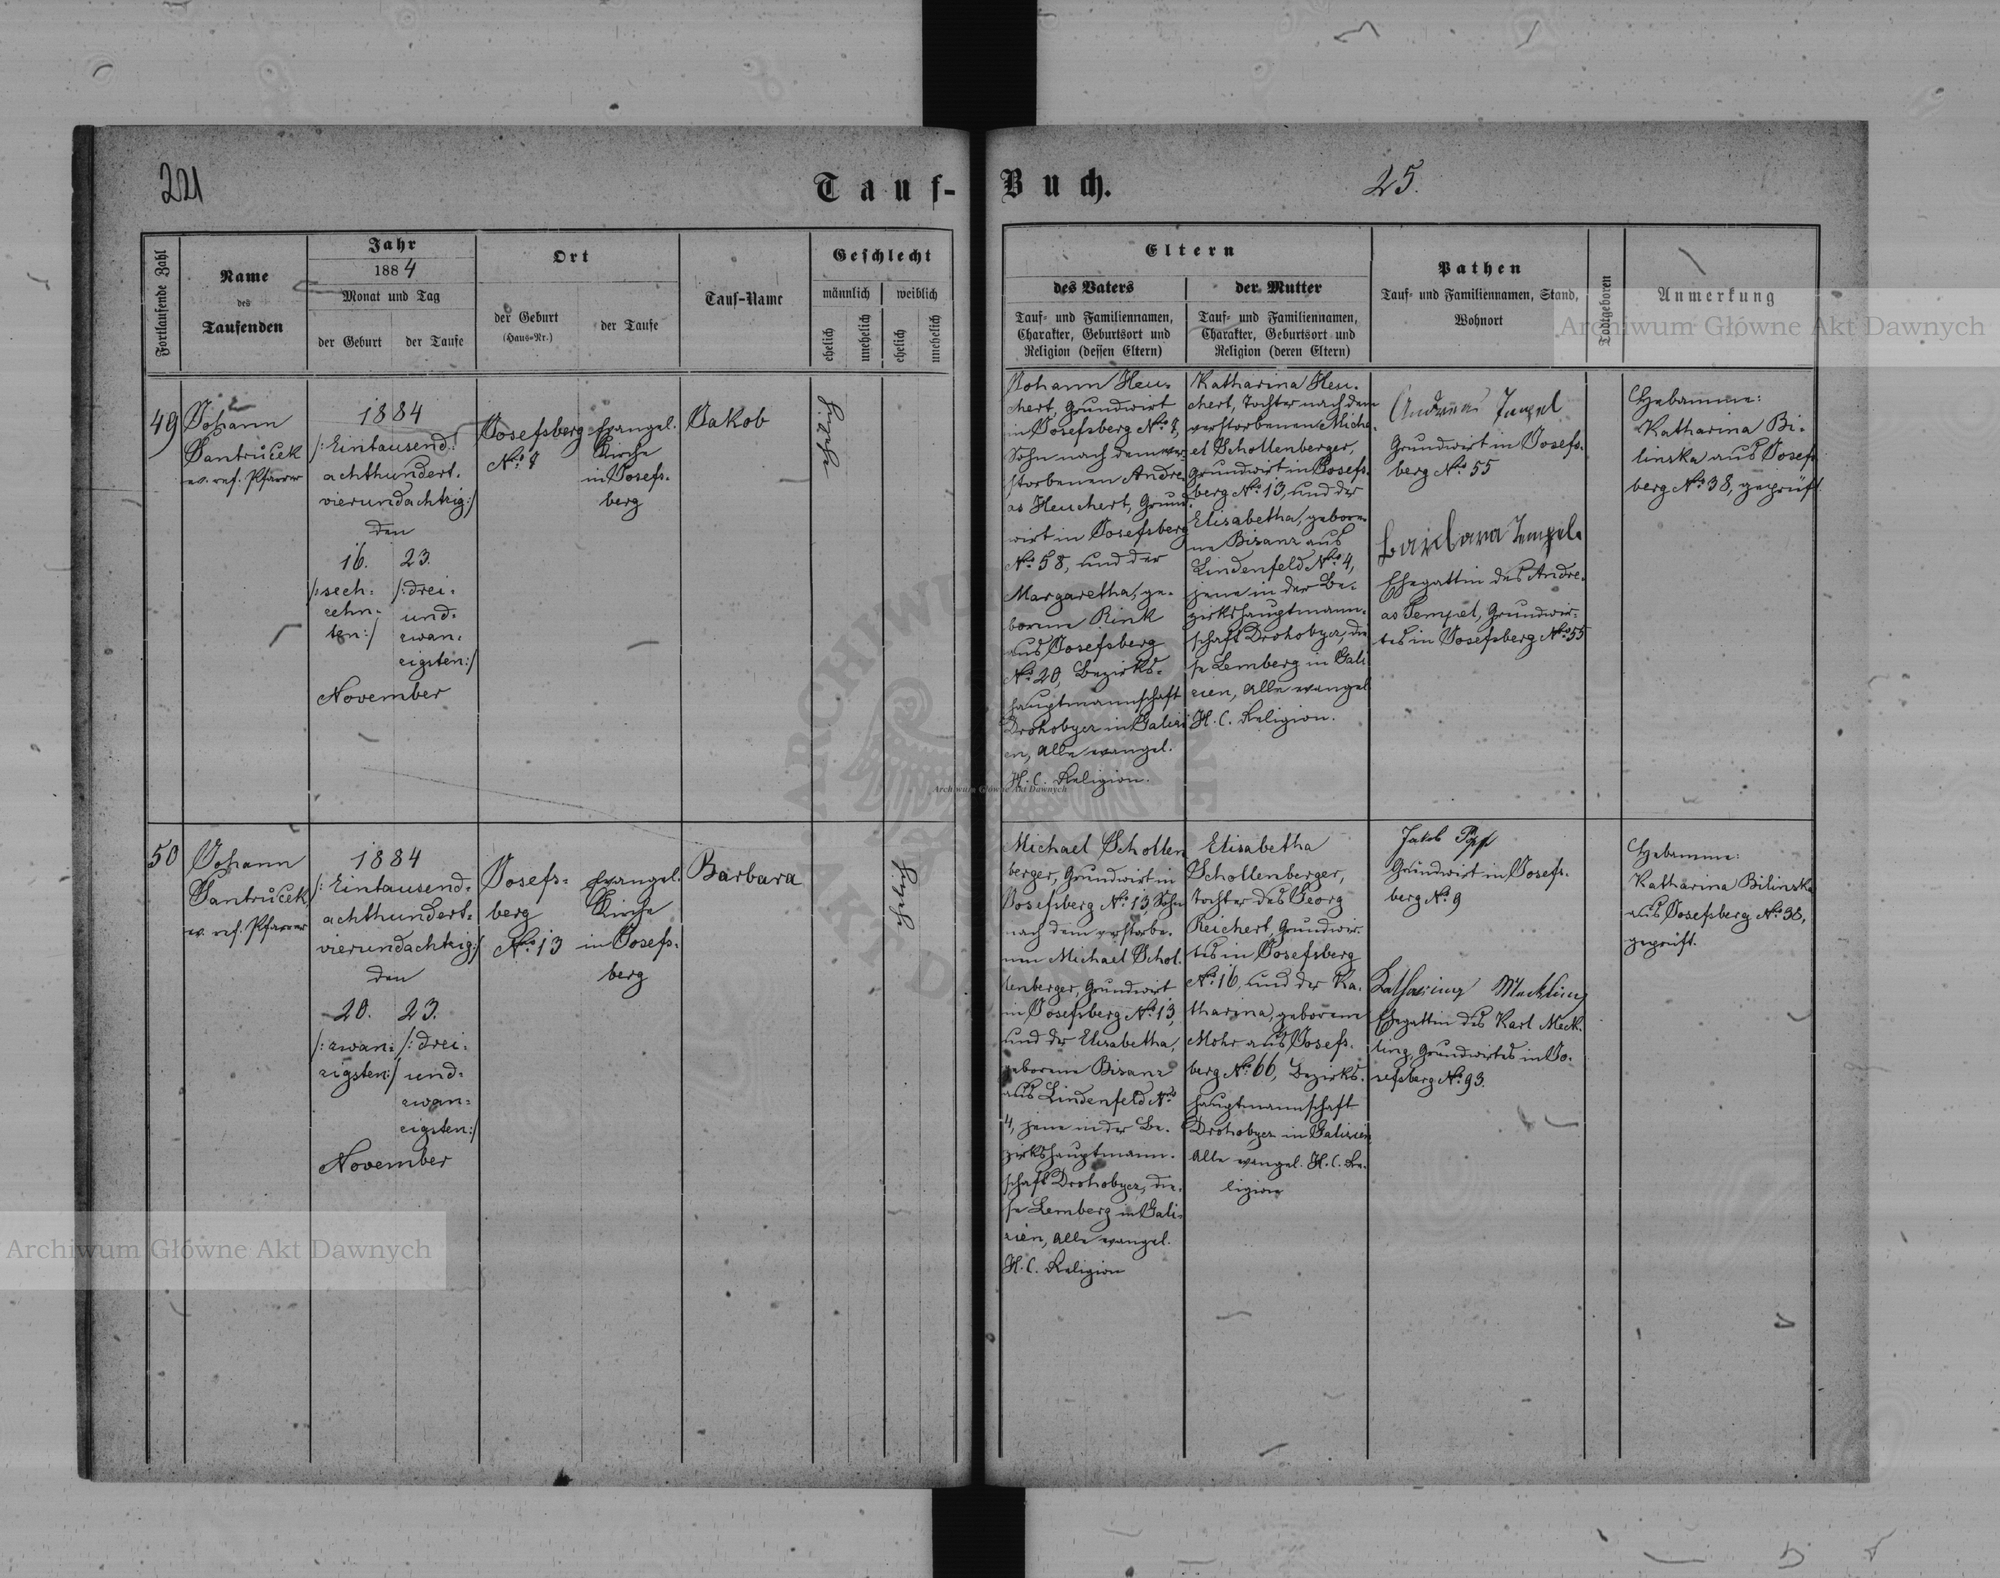 221
Tauf-Buch.
25.
Fortlaufende Zahl
Name
des
Taufenden
Jahr
1884
Monat und Tag
der Geburt
der Taufe
Ort
der Geburt
(Haus-Nr.)
der Taufe
Tauf-Name
Geschlecht
männlich
weiblich
ehelich
unehelich
ehelich
unehelich
Eltern
des Vaters
Tauf- und Familiennamen,
Charakter, Geburtsort und
Religion (dessen Eltern)
der Mutter
Tauf- und Familiennamen,
Charakter, Geburtsort und
Religion (deren Eltern)
Pathen
Tauf- und Familiennamen, Stand,
Wohnort
Todtgeboren
Anmerkung
49
Johann
Jantruček
ev. ref. Pfarrer
1884
/:Eintausend:
achthundert.
vierundachtzig:/
den
16.
/:sech:
zehn:
ten:/
23.
/:drei:
und:
zwan:
zigsten:/
November
Josefsberg
No.
Evangel.
Kirche
in Josefs:
berg
Jakob
Johann Heu:
chert, Grundwirt
in Josefsberg
Sohn nach dem ver:
storbenen Andre:
as Heuchert, Grund:
wirt in Josefsberg
No. 58, und der
Margaretha, ge:
borene Rink
aus Josefsberg
No. 20, Bezirks:
hauptmannschaft
Drohobycz in Galizi:
en, alle evangel.
H. C. Religion.
Katharina Heu:
chert, Tochter nach dem
verstorbenen Micha:
el Schollenberger,
Grundwirt in Josefs:
berg No. 13, und der
Elisabetha, gebore:
ne Bisanz aus
Lindenfeld No. 4,
jene in der Be:
zirkshauptmann:
schaft Drohobycz, die:
se Lemberg in Gali:
zien, alle evangel.
H. C. Religion.
Andreas Tempel
Grundwirt in Josefs:
berg No. 55
Barbara Tempel
Ehegattin des Andre:
as Tempel, Grundwir:
tes in Josefsberg No. 55
Hebamme:
Katharina Bi:
linska aus Josefs:
berg No. 38, geprüft
50
Johann
Jantruček
ev. ref. Pfarrer
1884
/:Eintausend:
achthundert:
vierundachtzig:/
den
20.
/:zwan:
zigsten:/
23.
/:drei:
und:
zwan:
zigsten:/
November
Josefs:
berg
No. 13
Evangel.
Kirche
in Josefs:
berg
Barbara
Michael Schollen
berger, Grundwirt in
Josefsberg No. 13, Sohn
nach dem verstorbe:
nen Michael Schol:
lenberger, Grundwirt
in Josefsberg No. 13,
und der Elisabetha,
geborene Bisanz
aus Lindenfeld No.
4, jene in der Be:
zirkshauptmann:
schaft Drohobycz, die:
se Lemberg in Gali:
zien, alle evangel.
H. C. Religion
Elisabetha
Schollenberger,
Tochter des Georg
Reichert, Grundwir:
tes in Josefsberg
No. 16, und der Ka:
tharina, geborene
Mohr aus Josefs:
berg No. 66, Bezirks:
hauptmannschaft
Drohobycz in Galizien
alle evangel. H. C. Re:
ligion
Jakob
Grundwirt in Josefs:
berg No. 9
Katharina Meckling
Ehegattin des Karl Meck:
ling, Grundwirtes in Jo:
sefsberg No. 93.
Hebamme:
Katharina Bilinska
aus Josefsberg No. 38,
geprüft.
Archiwum Główne Akt Dawnych
Archiwum Główne Akt Dawnych
Archiwum Główne Akt Dawnych